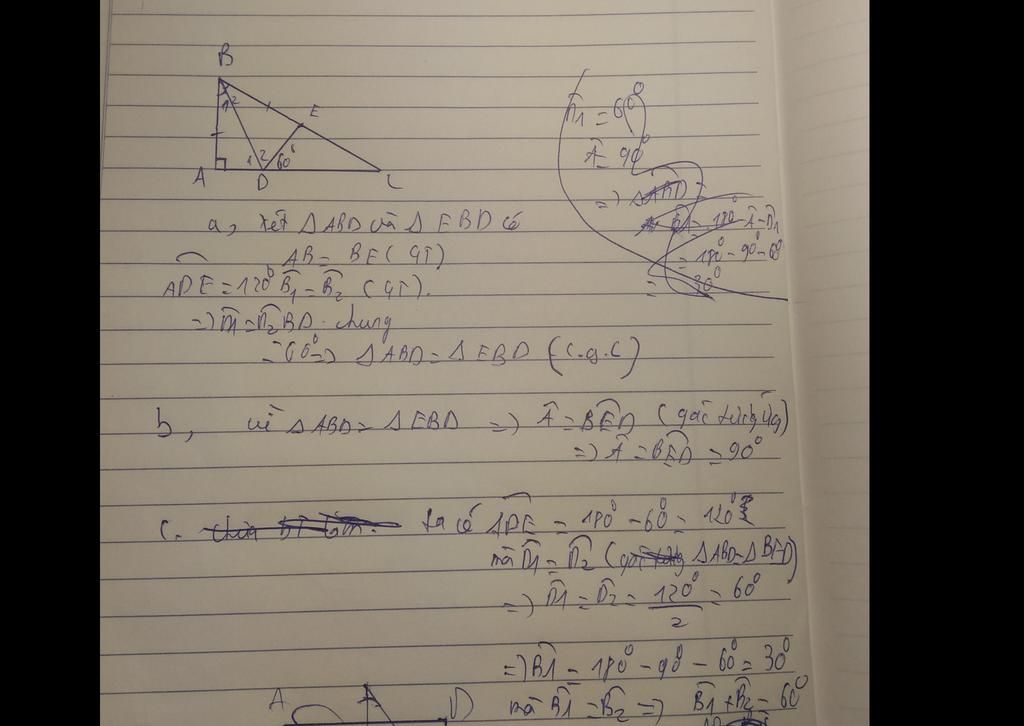 B
E
1 2
1 2 60°
A D C
D̂1 = 60°
Â = 90°
=) ΔABD
B̂1 = 180° - Â - D̂1
= 180° - 90° - 60°
= 30°
a, xét ΔABD và ΔEBD có
AB = BE (GT)
ADE = 120° B̂1 = B̂2 (GT).
=) D̂1 = D̂2 BD chung
= 60° =) ΔABD = ΔEBD (c.g.c)
b, vì ΔABD = ΔEBD =) Â = BÊD (góc tương ứng)
=) Â = BÊD = 90°
c. ta có ADE = 180° - 60° = 120°
mà D̂1 = D̂2 (ΔABD = ΔBED)
=) D̂1 = D̂2 = 120°/2 = 60°
=) B̂1 = 180° - 90° - 60° = 30°
mà B̂1 = B̂2 =) B̂1 + B̂2 = 60°
A D